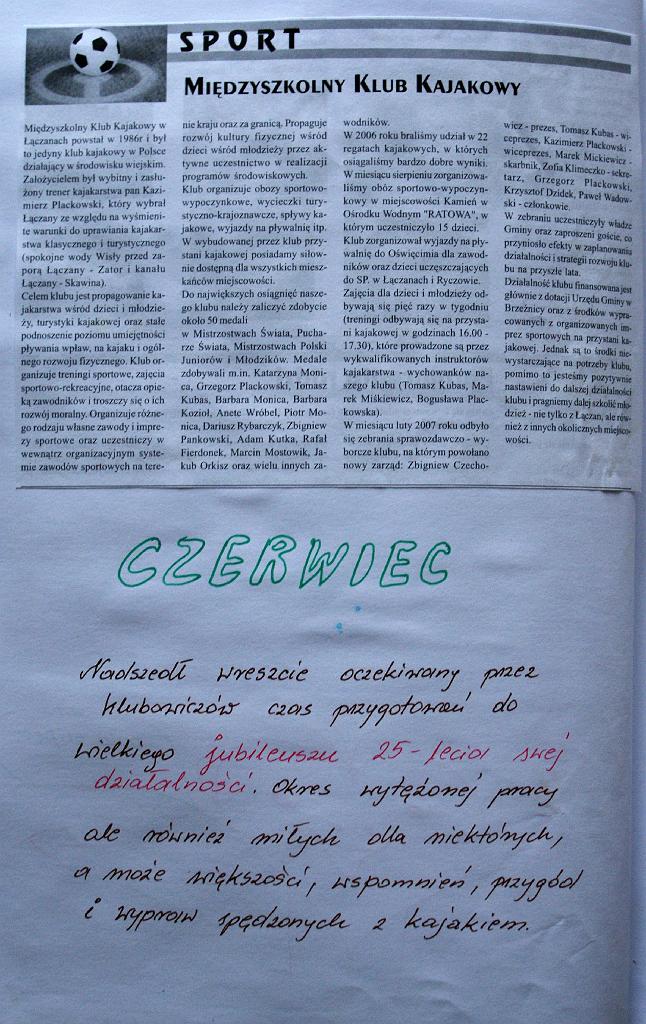 SPORT
MIĘDZYSZKOLNY KLUB KAJAKOWY
Międzyszkolny Klub Kajakowy w
Łączanach powstał w 1986r i był
to jedyny klub kajakowy w Polsce
działający w środowisku wiejskim.
Założycielem był wybitny i zasłu-
żony trener kajakarstwa pan Kazi-
mierz Plackowski, który wybrał
Łączany ze względu na wyśmieni-
te warunki do uprawiania kajakar-
stwa klasycznego i turystycznego
(spokojne wody Wisły przed za-
porą Łączany - Zator i kanału
Łączany - Skawina).
Celem klubu jest propagowanie ka-
jakarstwa wśród dzieci i młodzie-
ży, turystyki kajakowej oraz stałe
podnoszenie poziomu umiejętności
pływania wpław, na kajaku i ogól-
nego rozwoju fizycznego. Klub or-
ganizuje treningi sportowe, zajęcia
sportowo-rekreacyjne, otacza opie-
ką zawodników i troszczy się o ich
rozwój moralny. Organizuje różne-
go rodzaju własne zawody i impre-
zy sportowe oraz uczestniczy w
wewnątrz organizacyjnym syste-
mie zawodów sportowych na tere-
nie kraju oraz za granicą. Propaguje
rozwój kultury fizycznej wśród
dzieci wśród młodzieży przez ak-
tywne uczestnictwo w realizacji
programów środowiskowych.
Klub organizuje obozy sportowo-
wypoczynkowe, wycieczki tury-
styczno-krajoznawcze, spływy ka-
jakowe, wyjazdy na pływalnię itp.
W wybudowanej przez klub przy-
stani kajakowej posiadamy siłow-
nie dostępną dla wszystkich miesz-
kańców miejscowości.
Do największych osiągnięć nasze-
go klubu należy zaliczyć zdobycie
około 50 medali
w Mistrzostwach Świata, Pucha-
rze Świata, Mistrzostwach Polski
Juniorów i Młodzików. Medale
zdobywali m.in. Katarzyna Moni-
ca, Grzegorz Plackowski, Tomasz
Kubas, Barbara Monica, Barbara
Kozioł, Anete Wróbel, Piotr Mo-
nica, Dariusz Rybarczyk, Zbigniew
Pankowski, Adam Kutka, Rafał
Fierdonek, Marcin Mostowik, Ja-
kub Orkisz oraz wielu innych za-
wodników.
W 2006 roku braliśmy udział w 22
regatach kajakowych, w których
osiągaliśmy bardzo dobre wyniki.
W miesiącu sierpieniu zorganizowa-
liśmy obóz sportowo-wypoczyn-
kowy w miejscowości Kamień w
Ośrodku Wodnym "RATOWA", w
którym uczestniczyło 15 dzieci.
Klub zorganizował wyjazdy na pły-
walnię do Oświęcimia dla zawod-
ników oraz dzieci uczęszczających
do SP. w Łączanach i Ryczowie.
Zajęcia dla dzieci i młodzieży od-
bywają się pięć razy w tygodniu
(treningi odbywają się na przysta-
ni kajakowej w godzinach 16.00 -
17.30), które prowadzone są przez
wykwalifikowanych instruktorów
kajakarstwa - wychowanków na-
szego klubu (Tomasz Kubas, Ma-
rek Miśkiewicz, Bogusława Plac-
kowska).
W miesiącu luty 2007 roku odbyło
się zebrania sprawozdawczo - wy-
borcze klubu, na którym powołano
nowy zarząd: Zbigniew Czecho-
wicz - prezes, Tomasz Kubas - wi-
ceprezes, Kazimierz Plackowski -
wiceprezes, Marek Mickiewicz -
skarbnik, Zofia Klimeczko - sekre-
tarz, Grzegorz Plackowski,
Krzysztof Dzidek, Paweł Wadow-
ski - członkowie.
W zebraniu uczestniczyły władze
Gminy oraz zaproszeni goście, co
przyniosło efekty w zaplanowaniu
działalności i strategii rozwoju klu-
bu na przyszłe lata.
Działalność klubu finansowana jest
głównie z dotacji Urzędu Gminy w
Brzeźnicy oraz z środków wypra-
cowanych z organizowanych im-
prez sportowych na przystani ka-
jakowej. Jednak są to środki nie-
wystarczające na potrzeby klubu,
pomimo to jesteśmy pozytywnie
nastawieni do dalszej działalności
klubu i pragniemy dalej szkolić mło-
dzież - nie tylko z Łączan, ale rów-
nież z innych okolicznych miejsco-
wości.
CZERWIEC
Nadszedł wreszcie oczekiwany przez
klubowiczów czas przygotowań do
wielkiego jubileuszu 25-lecia swej
działalności. Okres wytężonej pracy
ale również miłych dla niektórych,
a może większości, wspomnień, przygód
i wypraw spędzonych z kajakiem.